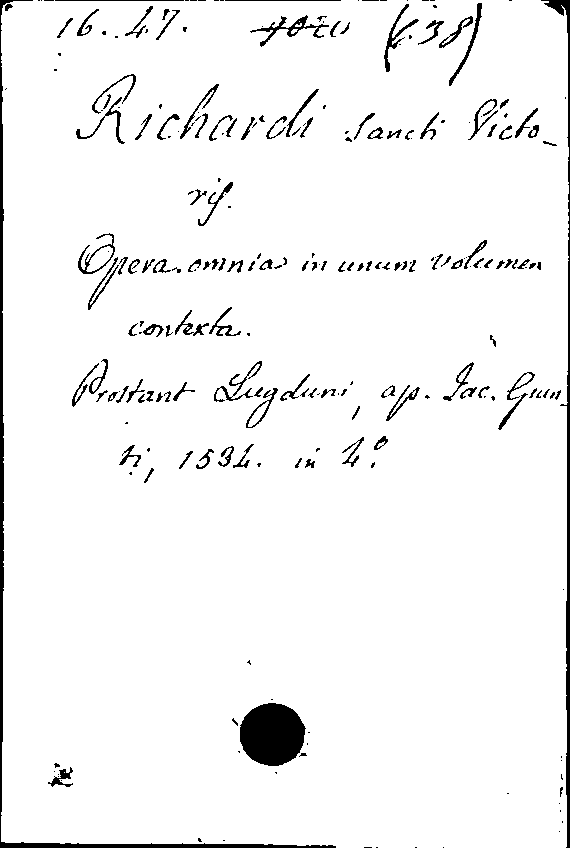 16. 47. (C.38)
Richardi Sancti Victo-
ris.
Opera omnia in unum volumen
contexta.
Prostant Lugduni, ap. Jac. Giun-
ti, 1534. in 4º.